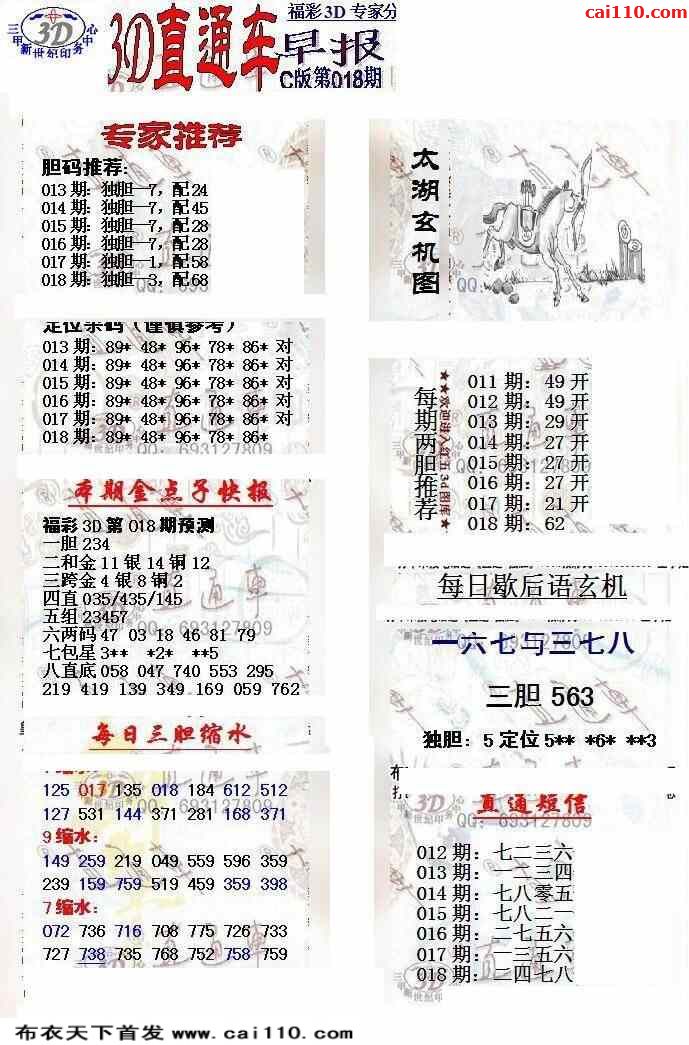 福彩3D 专家分
cai110.com
三甲 3D 心中
新世纪印务
3D直通车
早报
C版第018期
专家推荐
胆码推荐:
013期：独胆—7，配24
014期：独胆—7，配45
015期：独胆—7，配28
016期：独胆—7，配28
017期：独胆—1，配58
018期：独胆—3，配68
太湖玄机图
定位杀码（谨慎参考）
013期：89* 48* 96* 78* 86* 对
014期：89* 48* 96* 78* 86* 对
015期：89* 48* 96* 78* 86* 对
016期：89* 48* 96* 78* 86* 对
017期：89* 48* 96* 78* 86* 对
018期：89* 48* 96* 78* 86*
QQ：693127809
每期两胆推荐
★★欢迎进入红五3d图库★
011期：49开
012期：49开
013期：29开
014期：27开
015期：27开
016期：27开
017期：21开
018期：62
本期金点子快报
福彩3D第018期预测
一胆234
二和金11银14铜12
三跨金4银8铜2
四直035/435/145
五组23457
六两码47 03 18 46 81 79
七包星3** *2* **5
八直底058 047 740 553 295
219 419 139 349 169 059 762
每日歇后语玄机
一六七与三七八
三胆 563
独胆：5 定位5** *6* **3
每日三胆缩水
125 017 135 018 184 612 512
127 531 144 371 281 168 371
9缩水：
149 259 219 049 559 596 359
239 159 759 519 459 359 398
7缩水：
072 736 716 708 775 726 733
727 738 735 768 752 758 759
直通短信
QQ：693127809
012期：七二三六
013期：一二三四
014期：七八零五
015期：七八二一
016期：二七五六
017期：一三五六
018期：二四七八
布衣天下首发 www.cai110.com